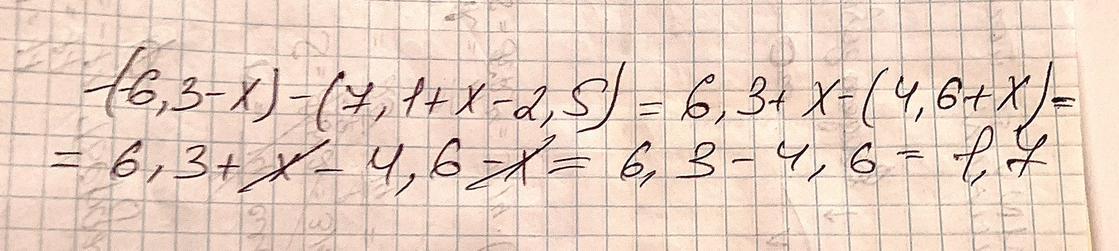 -(-6,3-x)-(7,1+x-2,5)=6,3+x-(4,6+x)=
=6,3+x-4,6-x=6,3-4,6=1,7